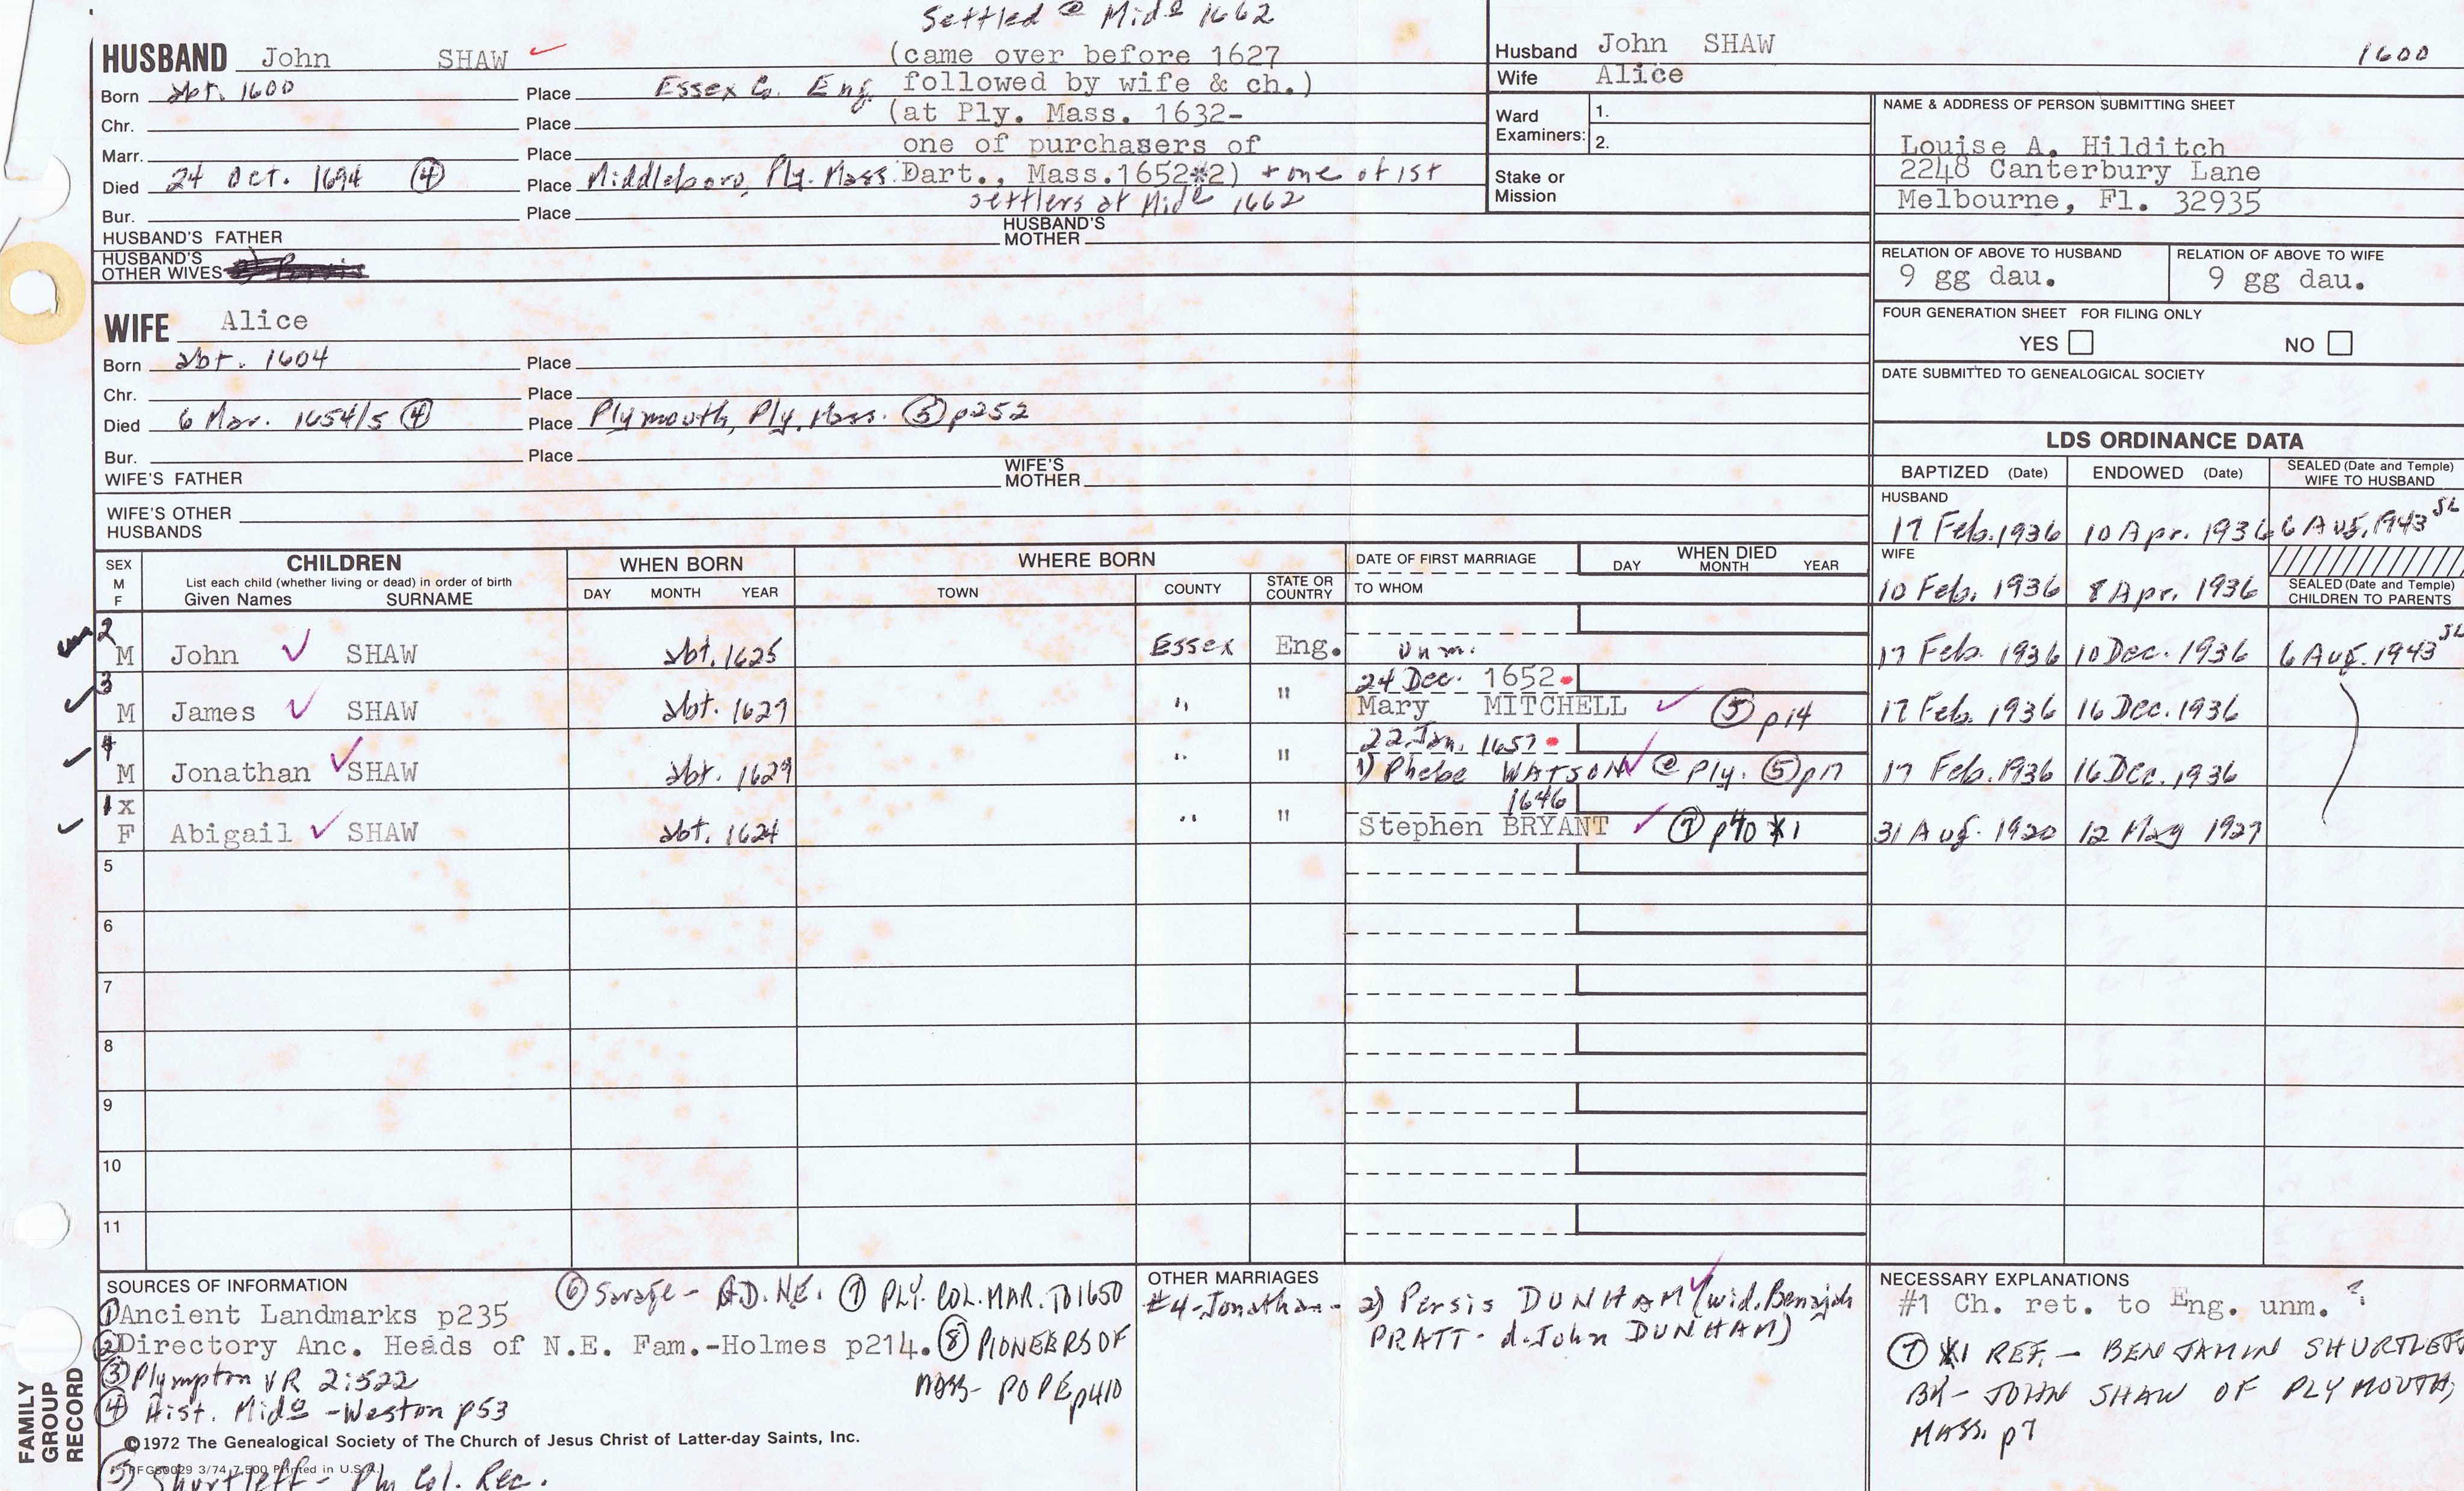 Settled @ Mid° 1662
HUSBAND John SHAW
(came over before 1627
Born abt. 1600 Place Essex Co. Eng. followed by wife & ch.)
Chr. Place (at Ply. Mass. 1632-
Marr. Place one of purchasers of
Died 24 Oct. 1694 ④ Place Middleboro, Ply. Mass. Dart., Mass.1652*2) + one of 1st
Bur. Place settlers at Mid° 1662
HUSBAND'S FATHER HUSBAND'S MOTHER
HUSBAND'S OTHER WIVES
Husband John SHAW 1600
Wife Alice
Ward Examiners: 1.
2.
Stake or Mission
NAME & ADDRESS OF PERSON SUBMITTING SHEET
Louise A. Hilditch
2248 Canterbury Lane
Melbourne, Fl. 32935
RELATION OF ABOVE TO HUSBAND RELATION OF ABOVE TO WIFE
9 gg dau. 9 gg dau.
FOUR GENERATION SHEET FOR FILING ONLY
YES NO
DATE SUBMITTED TO GENEALOGICAL SOCIETY
WIFE Alice
Born abt. 1604 Place
Chr. Place
Died 6 Mar. 1654/5 ④ Place Plymouth, Ply. Mass. ⑤ p252
Bur. Place
WIFE'S FATHER WIFE'S MOTHER
WIFE'S OTHER HUSBANDS
LDS ORDINANCE DATA
BAPTIZED (Date) ENDOWED (Date) SEALED (Date and Temple) WIFE TO HUSBAND
HUSBAND
17 Feb. 1936 10 Apr. 1936 6 Aug. 1943 SL
WIFE
10 Feb. 1936 8 Apr. 1936
SEALED (Date and Temple) CHILDREN TO PARENTS
SEX M F CHILDREN WHEN BORN WHERE BORN DATE OF FIRST MARRIAGE WHEN DIED
List each child (whether living or dead) in order of birth
Given Names SURNAME DAY MONTH YEAR TOWN COUNTY STATE OR COUNTRY TO WHOM DAY MONTH YEAR
2
M John SHAW abt. 1625 Essex Eng. unm. 17 Feb. 1936 10 Dec. 1936 6 Aug. 1943 SL
3 24 Dec. 1652
M James SHAW abt. 1627 " " Mary MITCHELL ⑤ p14 17 Feb. 1936 16 Dec. 1936
4 22 Jan. 1657
M Jonathan SHAW abt. 1629 " " 1) Phebe WATSON @ Ply. ⑤ p17 17 Feb. 1936 16 Dec. 1936
1 X 1646
F Abigail SHAW abt. 1624 " " Stephen BRYANT ⑦ p40 *1 31 Aug. 1920 12 May 1927
5
6
7
8
9
10
11
SOURCES OF INFORMATION ⑥ Savage - G.D.N.E. ⑦ PLY. COL. MAR. TO 1650
①Ancient Landmarks p235
②Directory Anc. Heads of N.E. Fam.-Holmes p214. ⑧ PIONEERS OF
③ Plympton VR 2:522 MASS - POPE p410
④ Hist. Mid° - Weston p53
©1972 The Genealogical Society of The Church of Jesus Christ of Latter-day Saints, Inc.
PFGS0029 3/74 7,500 Printed in U.S.A.
⑤ Shurtleff - Ply Col. Rec.
FAMILY GROUP RECORD
OTHER MARRIAGES
#4-Jonathan- 2) Persis DUNHAM (wid. Benajah
PRATT - d. John DUNHAM)
NECESSARY EXPLANATIONS
#1 Ch. ret. to Eng. unm. ?
⑦ *1 REF. - BENJAMIN SHURTLEFF
BK - JOHN SHAW OF PLYMOUTH,
MASS. p7